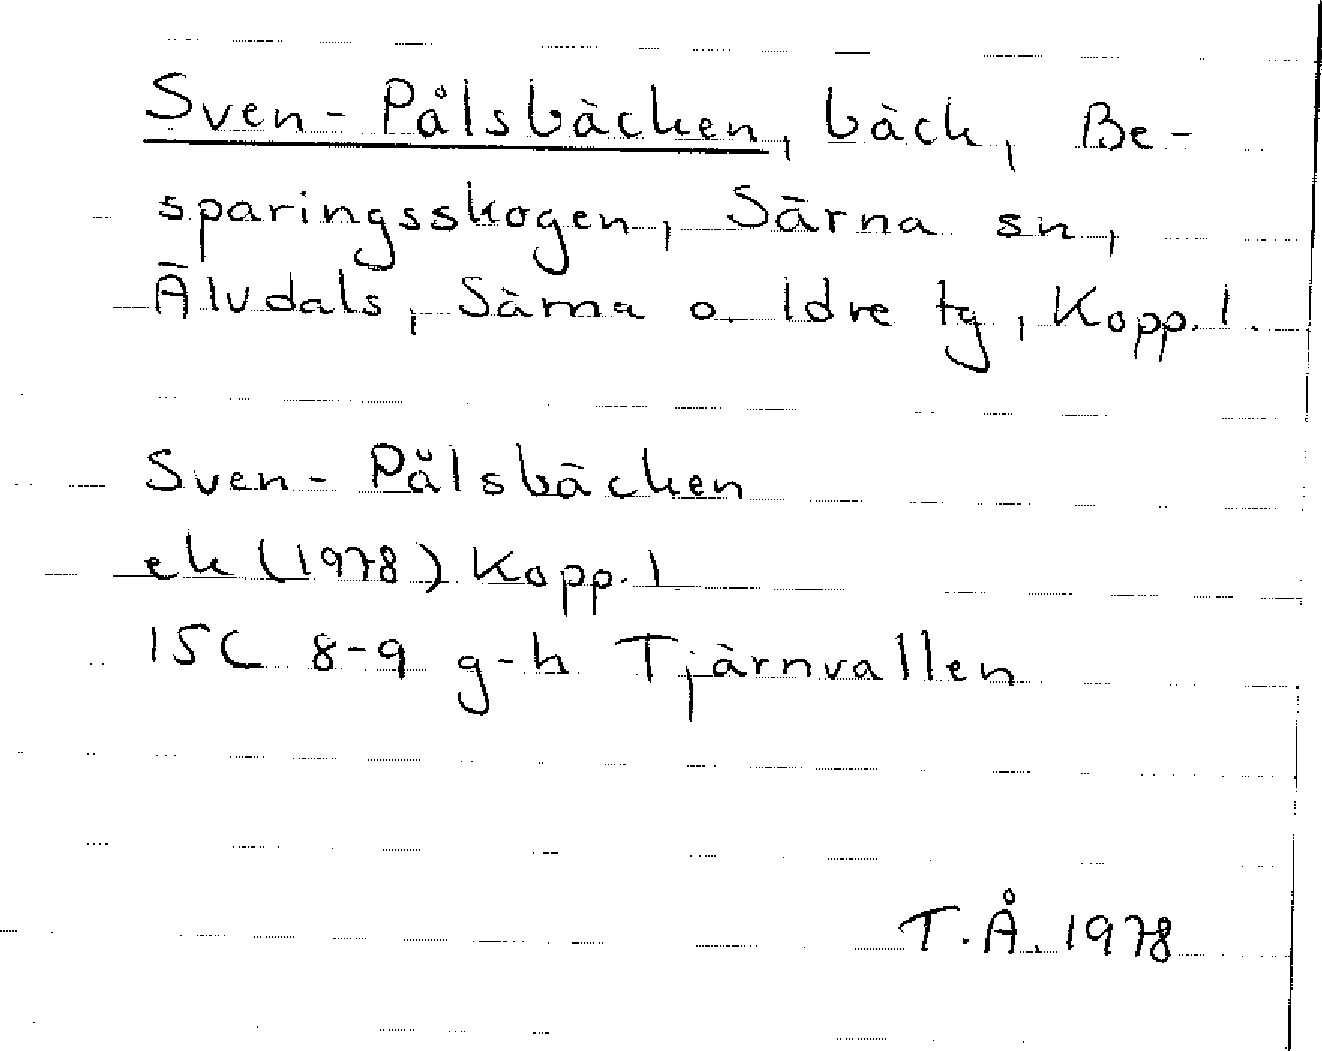 Sven-Pålsbäcken, bäck, Be-
sparingsskogen, Särna sn,
Älvdals, Särna o. Idre tg, Kopp. l.
Sven-Pålsbäcken
ek (1978) Kopp. l
15C 8-9 g-h Tjärnvallen
T.Å. 1978